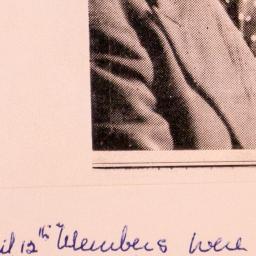 il 12th Members were